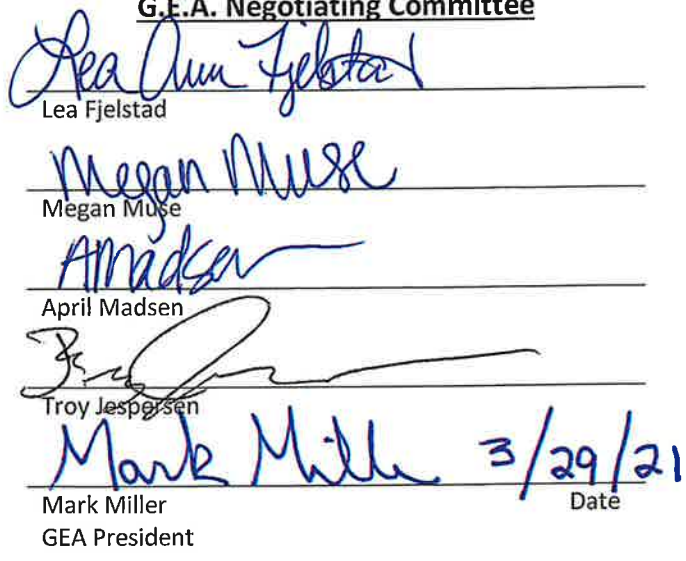 G.E.A. Negotiating Committee
Lea Ann Fjelstad
Lea Fjelstad
Megan Muse
Megan Muse
AMadsen
April Madsen
Troy Jespersen
Mark Miller 3/29/21
Mark Miller Date
GEA President